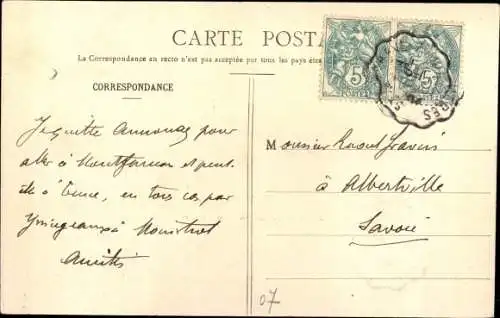 CARTE POSTA
La Correspondance au recto n'est pas acceptée par tous les pays étra
CORRESPONDANCE
5 5
POSTES
Je quitte Annonay pour
aller à Montfaucon et peut
être à Tence, en tous cas par
Yssingeaux à Monistrol
Amitiés
Monsieur Raoul
à Albertville
Savoie
07